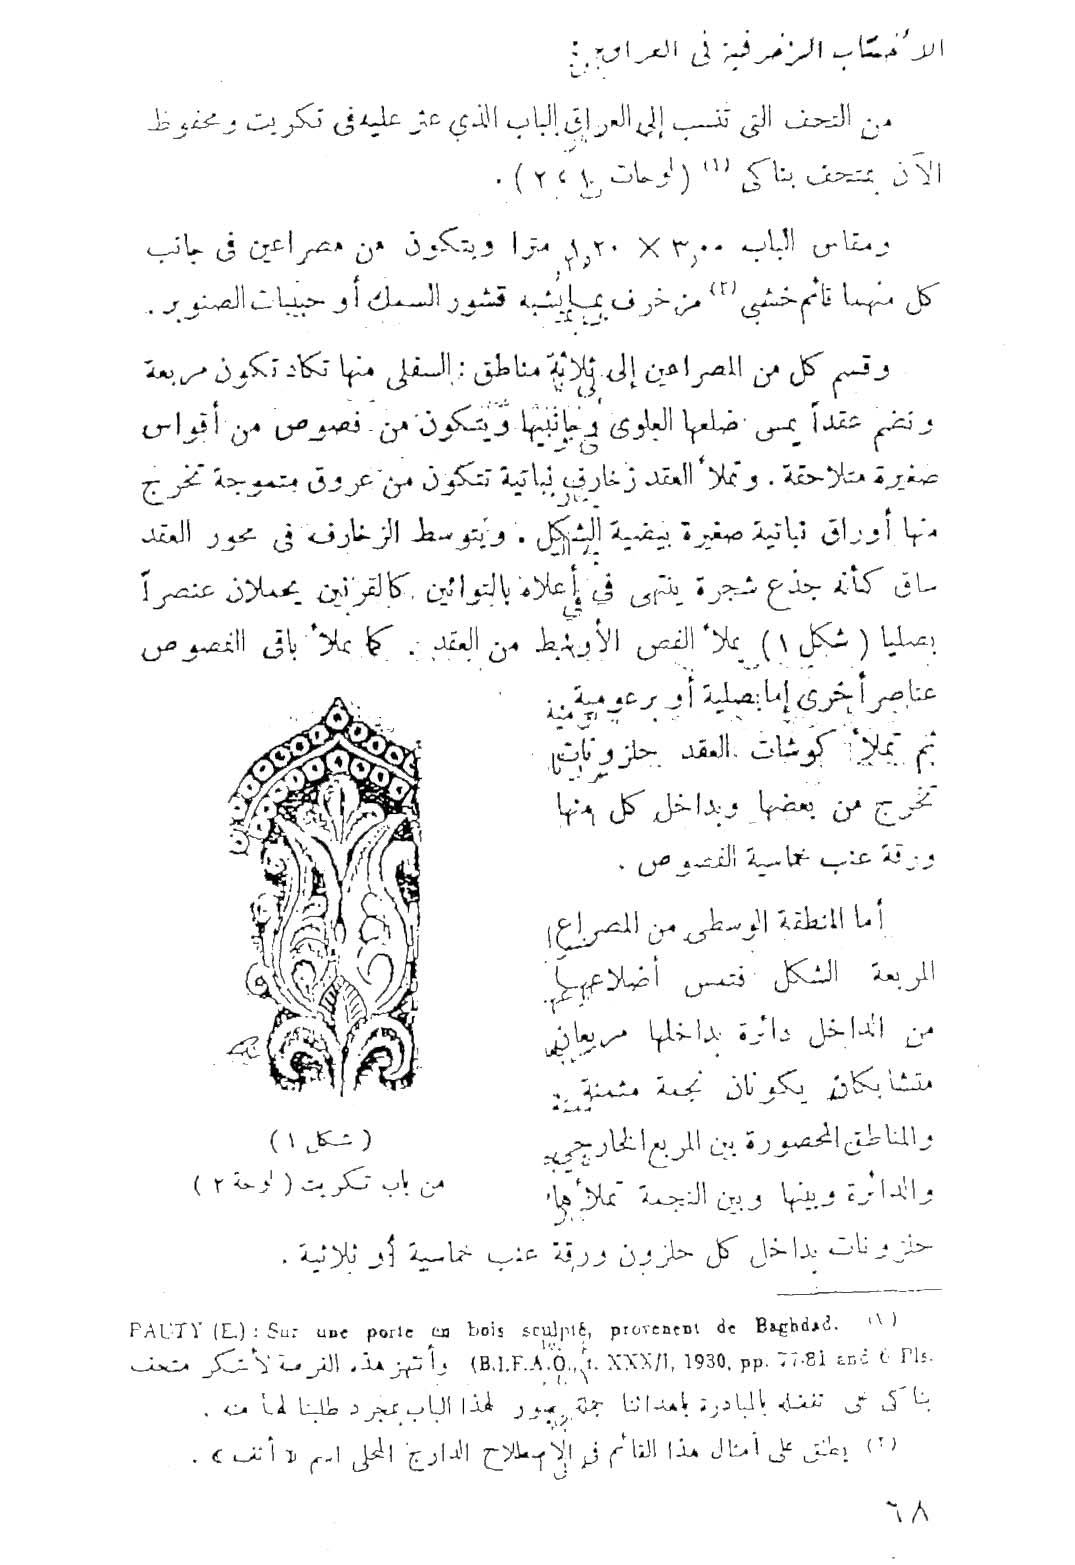 الأخشاب الزخرفية فى العراق :
من التحف التى تنسب إلى العراق الباب الذي عثر عليه فى تكريت ومحفوظ
الآن بمتحف بناكى (١) (لوحات ١ ، ٢) .
ومقاس الباب ٣,٠٠ × ١,٢٠ مترا ويتكون من مصراعين فى جانب
كل منهما قائم خشبى (٢) مزخرف بما يشبه قشور السمك أو حبيبات الصنوبر .
وقسم كل من المصراعين إلى ثلاثة مناطق : السفلى منها تكاد تكون مربعة
وتضم عقداً يمس ضلعها العلوى وجانبيها ويتكون من فصوص من أقواس
صغيرة متلاحقة . وتملأ العقد زخارف نباتية تتكون من عروق متموجة تخرج
منها أوراق نباتية صغيرة بيضية الشكل . ويتوسط الزخارف فى محور العقد
ساق كأنه جذع شجرة ينتهى في أعلاه بالتوائين كالقرنين يحملان عنصراً
بصليا (شكل ١) يملأ الفص الأوسط من العقد . كما يملأ باقى الفصوص
عناصر أخرى إما بصلية أو برعومية
ثم تملأ كوشات العقد حلزونات
تخرج من بعضها وبداخل كل منها
ورقة عنب خماسية الفصوص .
أما المنطقة الوسطى من المصراع
المربعة الشكل فتمس أضلاعها
من الداخل دائرة بداخلها مربعان
متشابكان يكونان نجمة مثمنة
والمناطق المحصورة بين المربع الخارجي
والدائرة وبينها وبين النجمة تملأها
حلزونات بداخل كل حلزون ورقة عنب خماسية أو ثلاثية .
(شكل ١)
من باب تكريت (لوحة ٢)
(١) PAUTY (E.) : Sur une porte en bois sculpté, provenent de Baghdad.
(B.I.F.A.O., t. XXX/I, 1930, pp. 77-81 and 6 Pls. وأنتهز هذه الفرصة لأشكر متحف
بناكى على تفضله بالمبادرة بإهدائنا جملة صور لهذا الباب بمجرد طلبنا لها منه .
(٢) يطلق على أمثال هذا القائم فى الاصطلاح الدارج المحلى اسم « أنف » .
٦٨